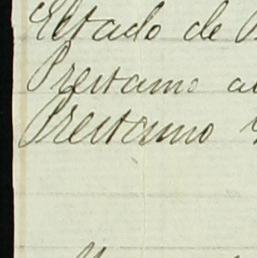 Estado de
Prestamo a
Prestamo